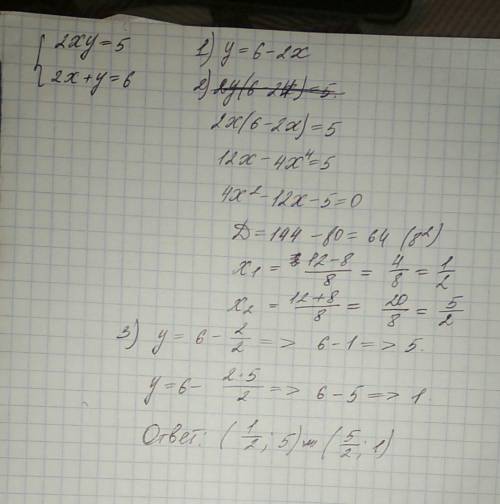 { 2xy = 5
2x + y = 6
1) y = 6 - 2x
2) 2y(6 - 2x) = 5.
2x(6 - 2x) = 5
12x - 4x⁴ = 5
4x² - 12x - 5 = 0
D = 144 - 80 = 64 (8²)
x₁ = (12 - 8)/8 = 4/8 = 1/2
x₂ = (12 + 8)/8 = 20/8 = 5/2
3) y = 6 - 2/2 => 6 - 1 => 5.
y = 6 - (2·5)/2 => 6 - 5 => 1.
Ответ: (1/2; 5) и (5/2; 1)